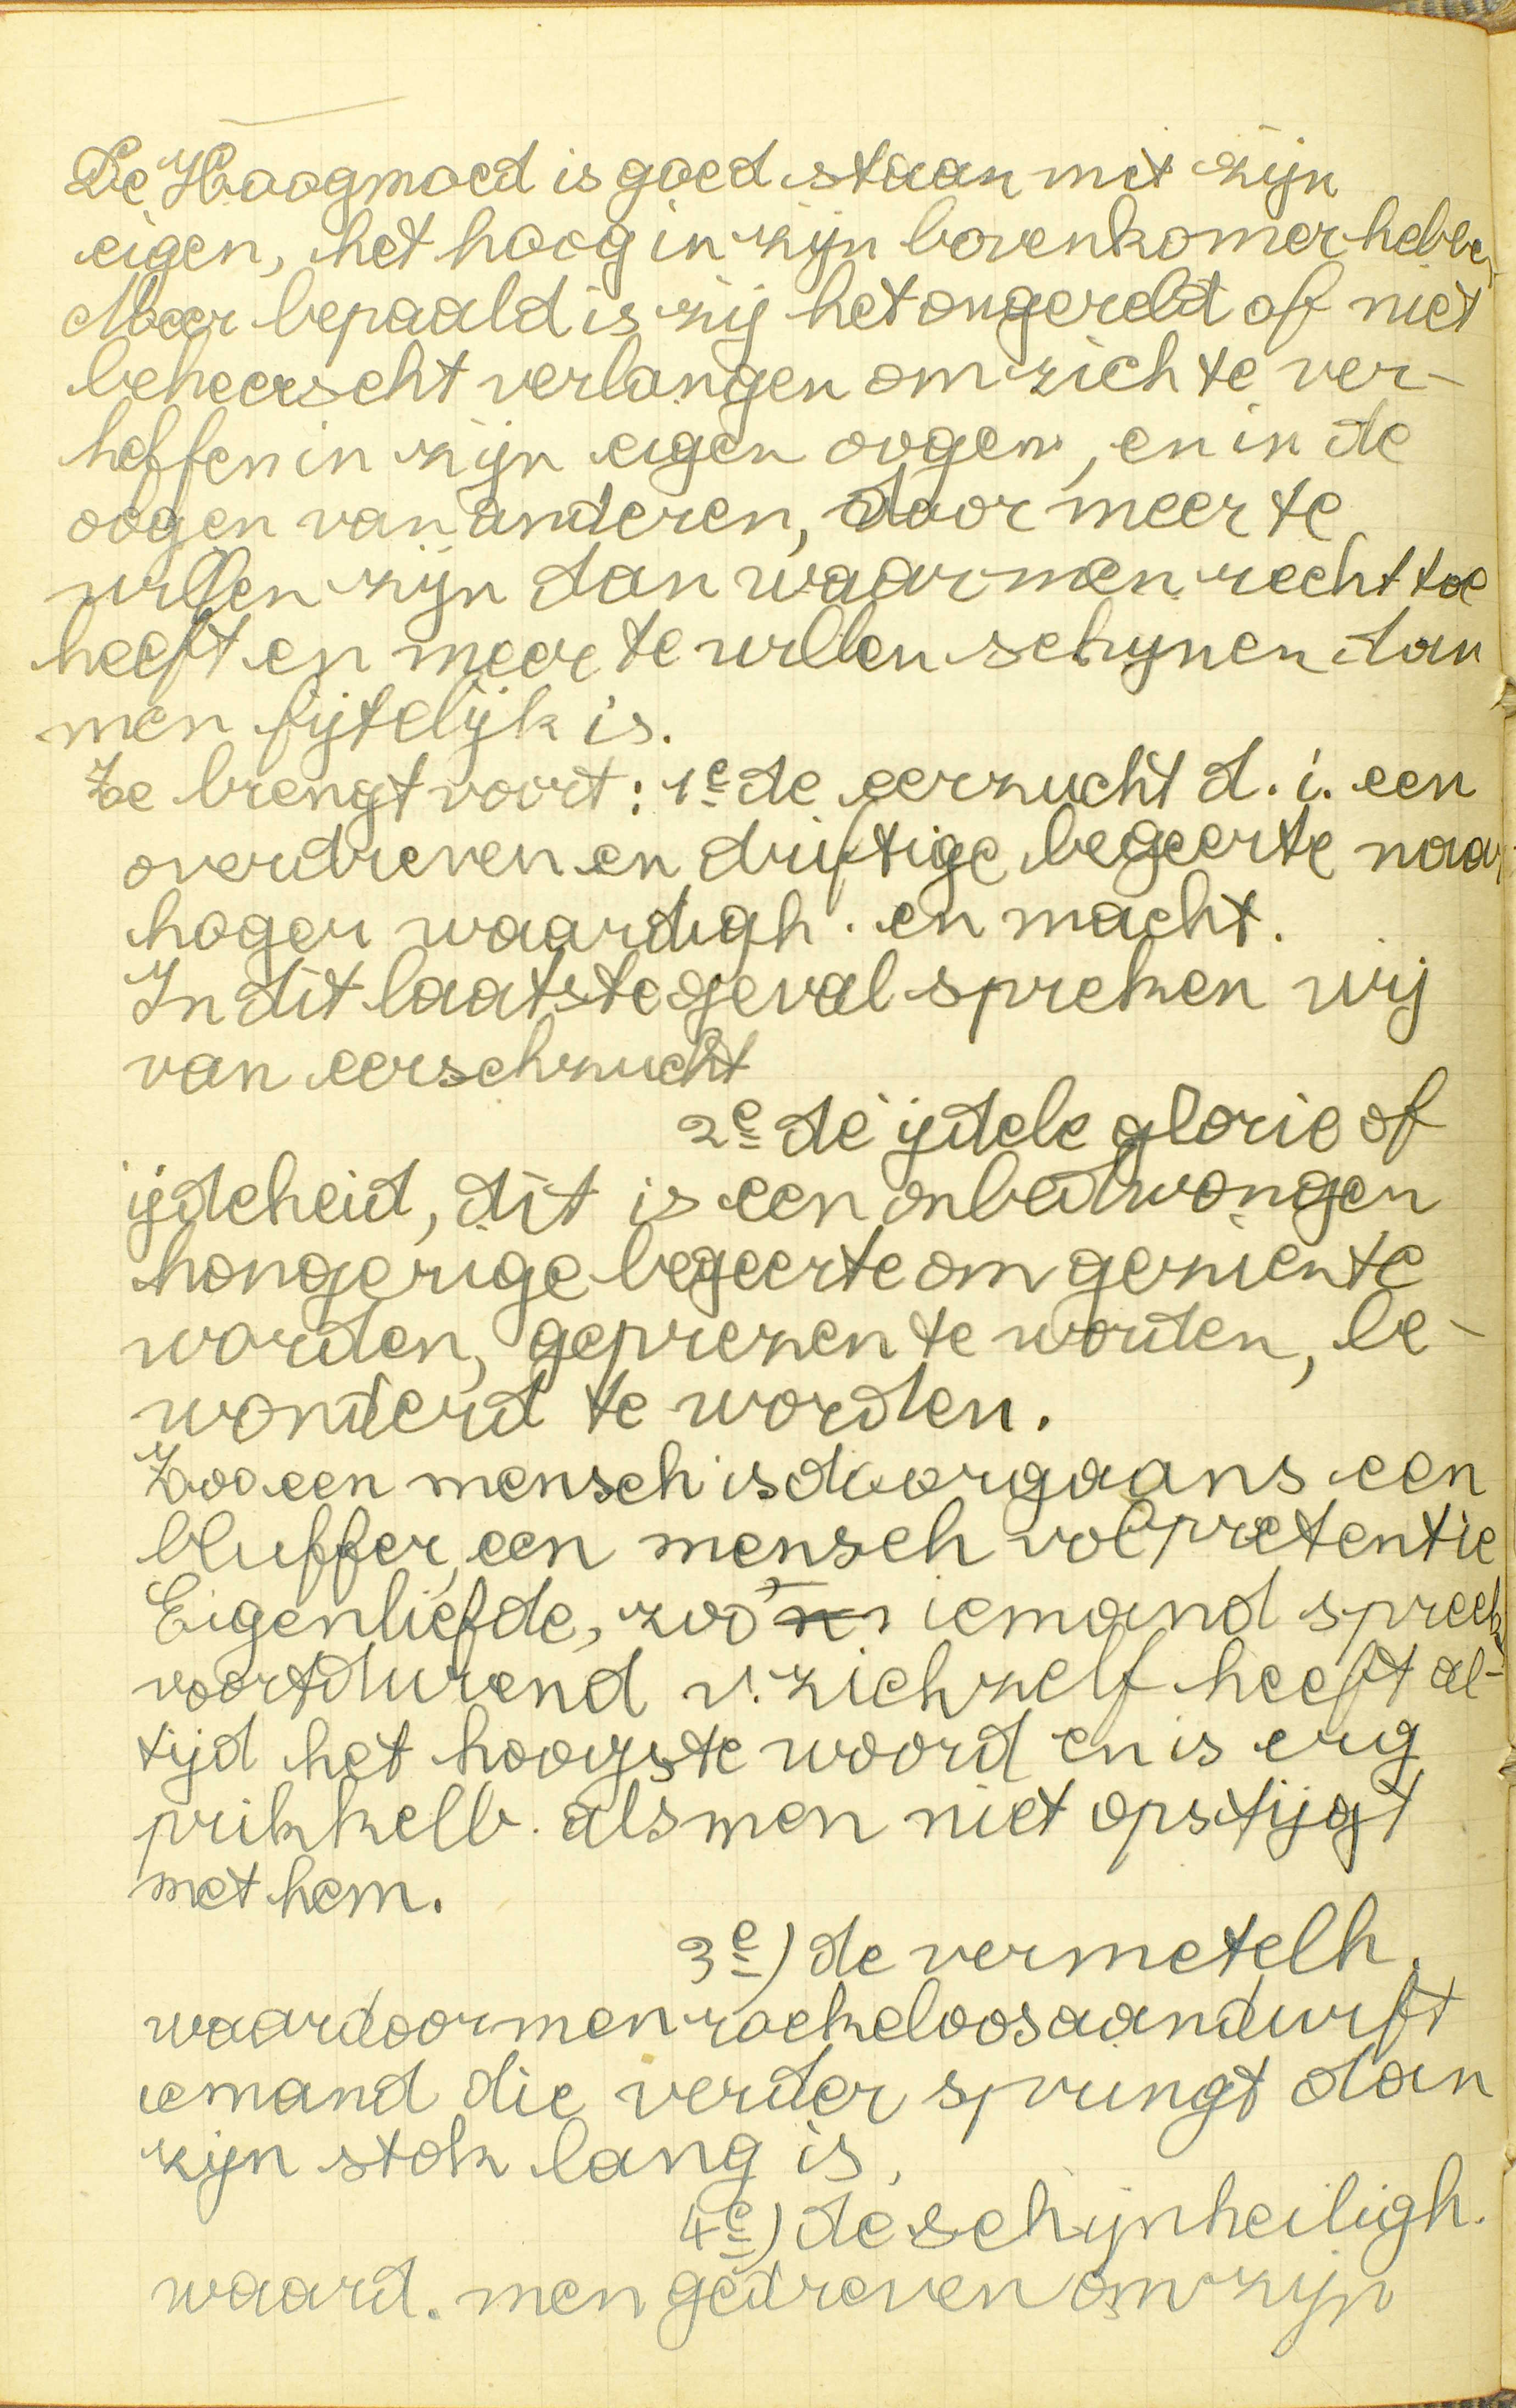 De Hoogmoed is goed staan met zijn
eigen, het hoog in zijn bovenkomer hebben
Meer bepaald is zij het ongereld of niet
beheerscht verlangen om zich te ver-
heffen in zijn eigen oogen, en in de
oogen van anderen, door meer te
willen zijn dan waar men recht toe
heeft en meer te willen schijnen dan
men fijtelijk is.
Ze brengt voort: 1e de eerzucht d.i. een
overdreven en driftige begeerte naar
hoger waardigh. en macht.
In dit laatste geval spreken wij
van eerschzucht
2e de ijdele glorie of
ijdelheid, dit is een onbedwongen
hongerige begeerte om gezien te
worden, geprezen te worden, be-
wonderd te worden.
Zoo een mensch is doorgaans een
bluffer, een mensch vol pretentie
Eigenliefde, zoo iemand spreekt
voortdurend v. zichzelf heeft al-
tijd het hoogste woord en is erg
prikkelb. als men niet opstijgt
met hem.
3e) de vermetelh.
waardoor men roekeloos aandurft
iemand die verder springt dan
zijn stok lang is,
4e) de schijnheiligh.
waard. men gedreven om zijn